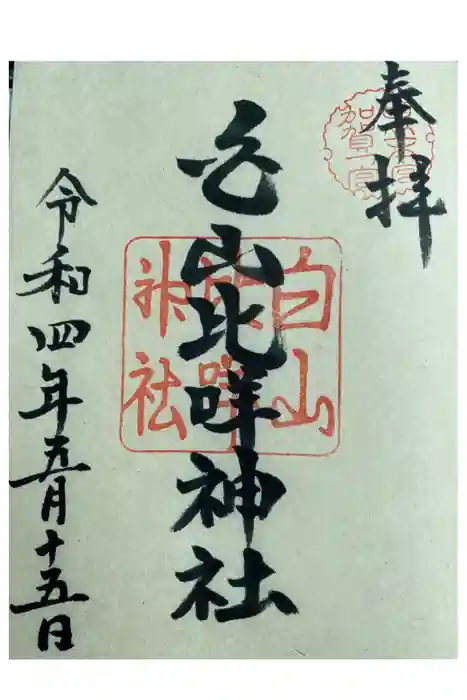 奉拝
加賀一宮
白山比咩神社
白山比咩神社
令和四年五月十五日